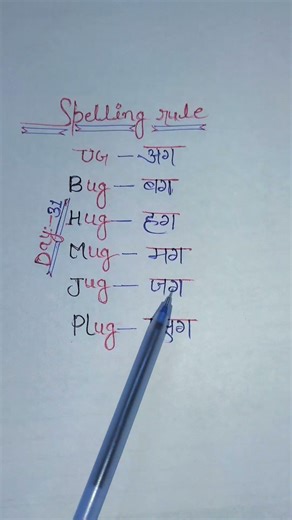 Spelling rule
UG — अग
Bug — बग
Day:-31
Hug — हग
Mug — मग
Jug — जग
Plug —